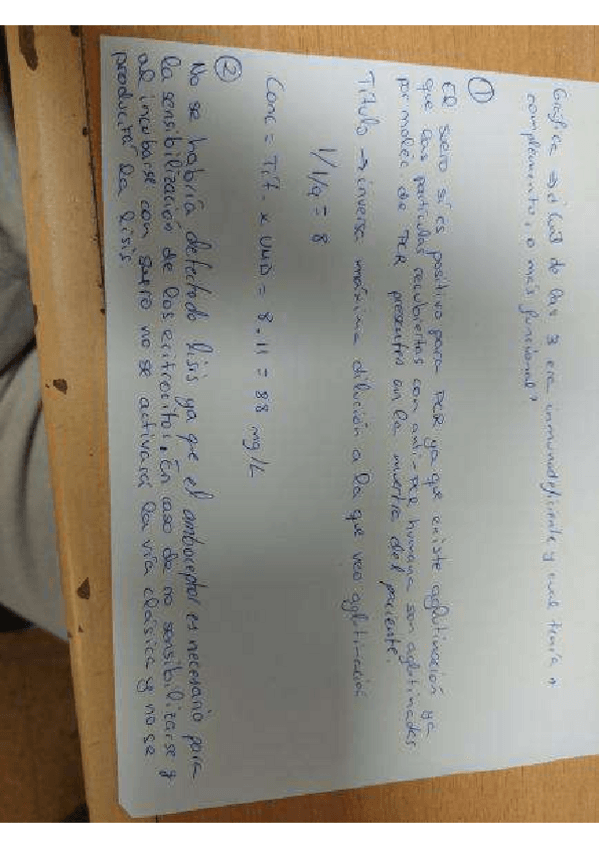 Gráfica → ¿Cuál de los 3 era inmunodeficiente y cual tenía +
complemento, o más funcional?
①
El suero sí es positivo para PCR ya que existe aglutinación ya
que las partículas recubiertas con anti-PCR humana son aglutinadas
por moléc. de PCR presentes en la muestra del paciente.
Título → inversa máxima dilución a la que veo aglutinación
Conc = Tít. x UMD = 8 · 11 = 88 mg/L
②
No se habría detectado lisis ya que el amboceptor es necesario para
la sensibilización de los eritrocitos. En caso de no sensibilizarse y
al incubarse con suero no se activará la vía clásica y no se
producirá la lisis.